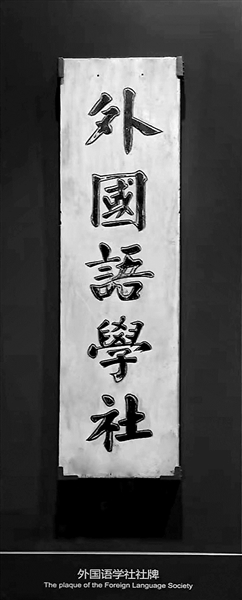 外國語學社
外国语学社社牌
The plaque of the Foreign Language Society